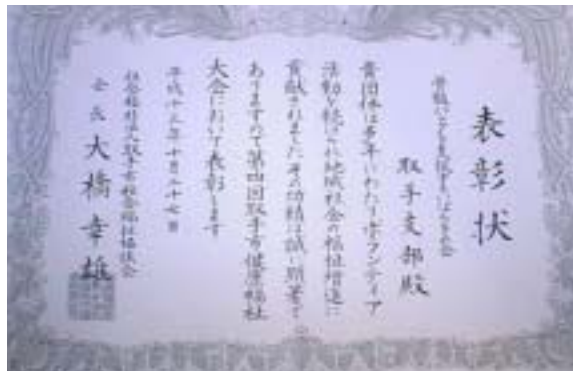 表彰状
取手支部殿
貴団体は多年にわたりボランティア
活動を続けられ地域社会の福祉増進に
貢献されましたその功績は誠に顕著で
ありますので第四回取手市健康福祉
大会において表彰します
平成十三年十月二十七日
社会福祉法人取手市社会福祉協議会
会長 大橋幸雄